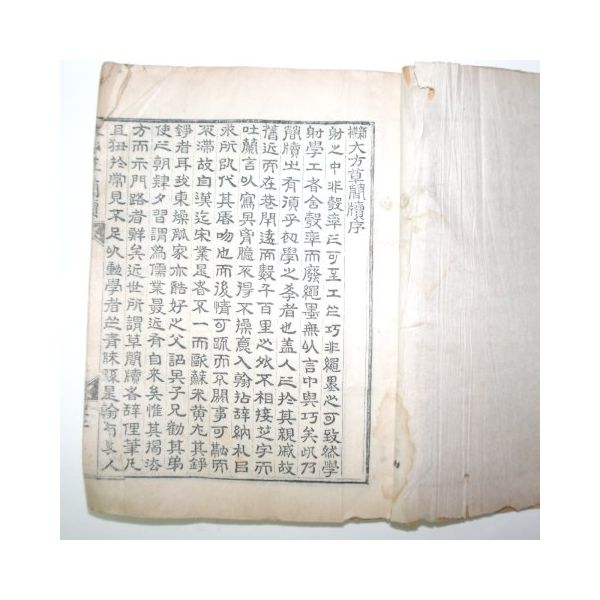 新編大方草簡牘序
射之中非彀率㞢可至工㞢巧非繩墨㞢可致然學
射學工者舍彀率而廢繩墨無㠯言中與巧矣况乃
簡牘㞢有須乎初學㞢孝者也盖人㞢於其親戚故
舊近而在巷閈遠而數千百里㞢外不相接芝宇而
吐蘭言㠯寫其胷臆不得不操意入翰拈辞納札㠯
求所㠯代其唇吻也而後情可疏而不關事可勑而
不滯故自漢迄宋業是者不一而歐蘇米黄尤其錚
錚者耳我東操觚家亦酷好㞢父詔其子兄勸其弟
使㞢朝肄夕習謂為儒業最近者自来矣惟其揭法
方而示門路者鮮矣近世所謂草簡牘各辞俚筆凡
且拘於常見不足㠯勸學者㞢青眛縣是翰与其人